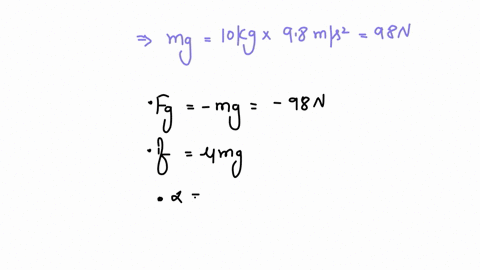 ⇒ mg = 10kg × 9.8 m/s² = 98N
• Fg = -mg = - 98N
• f = μmg
• α =